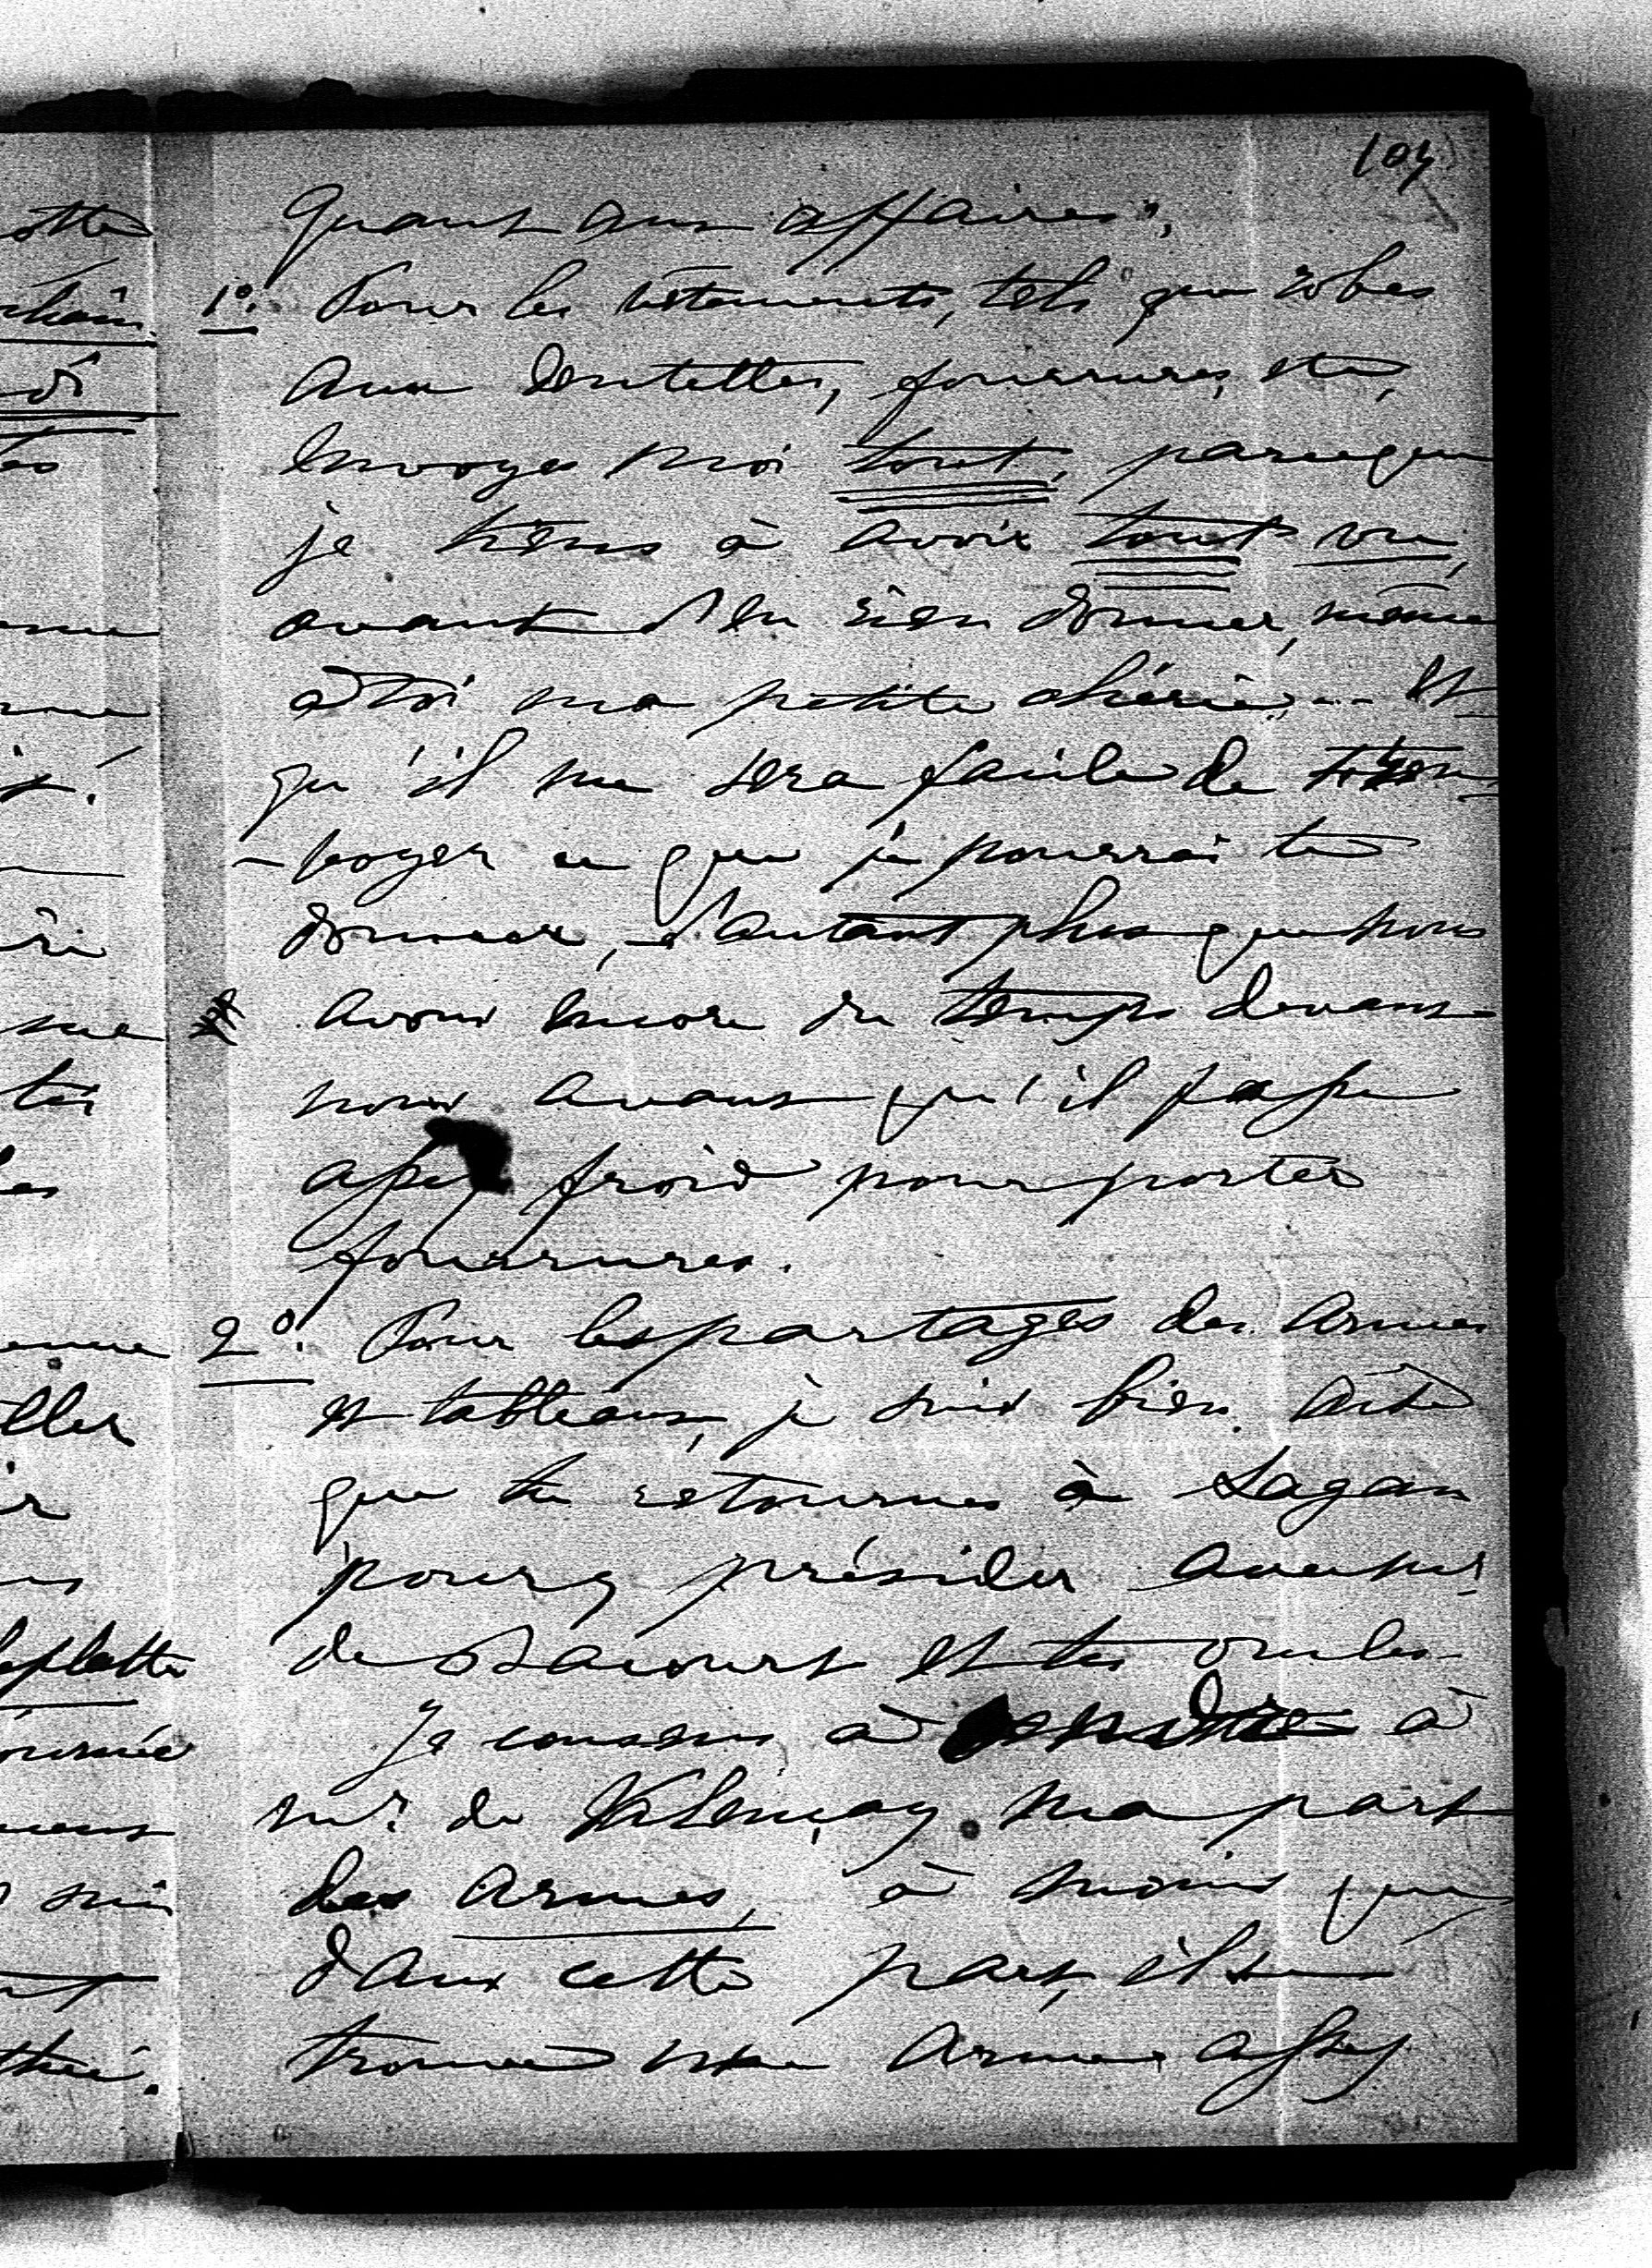 104
Quant aux affaires,
1º. Pour les vêtements, tels que robes
aux dentelles, fourrures, etc,
envoyes moi tout, parceque
je tiens à avoir tout vu,
avant d'en rien donner, même
à toi ma petite chérie,... Et
qu'il me sera facile de t'en
-voyer ce que je pourrai te
donner, d'autant plus que nous
avons encore du temps devant
nous avant qu'il fasse
assez froid pour porter
fourrures.
2º. Pour les partages des armes
et tableaux, je suis bien aise
que tu retournes à Sagan
pour y présider avec mr.
de Bacourt et tes oncles.
Je consens à à
mr. de Valençay ma part
des armes, à moins que
dans cette part, il se
trouve une arme assez